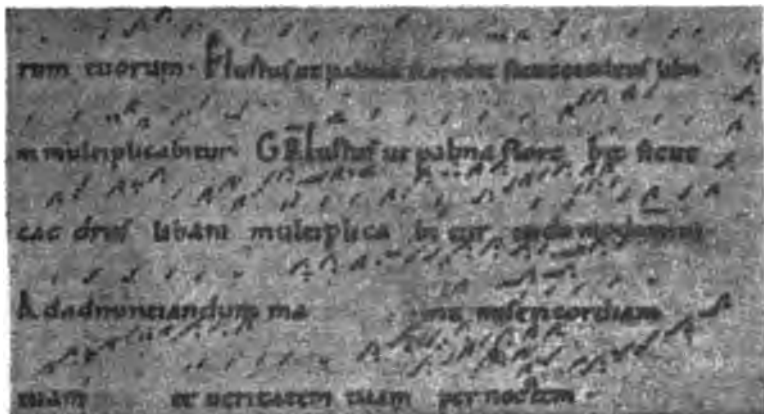 rum tuorum. Iustus ut palma florebit sicut cedrus liba
ni multiplicabitur. GR Iustus ut palma flore bit sicut
cac drus libani multiplica bi tur in domo domini.
Ad adnunciandum ma ne misericordiam
tuam et ueritatem tuam per noctem.